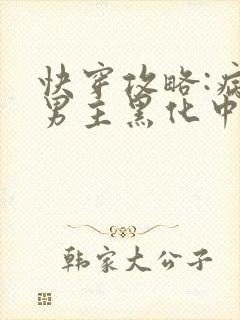 快穿攻略:病
男主黑化中
韩家大公子